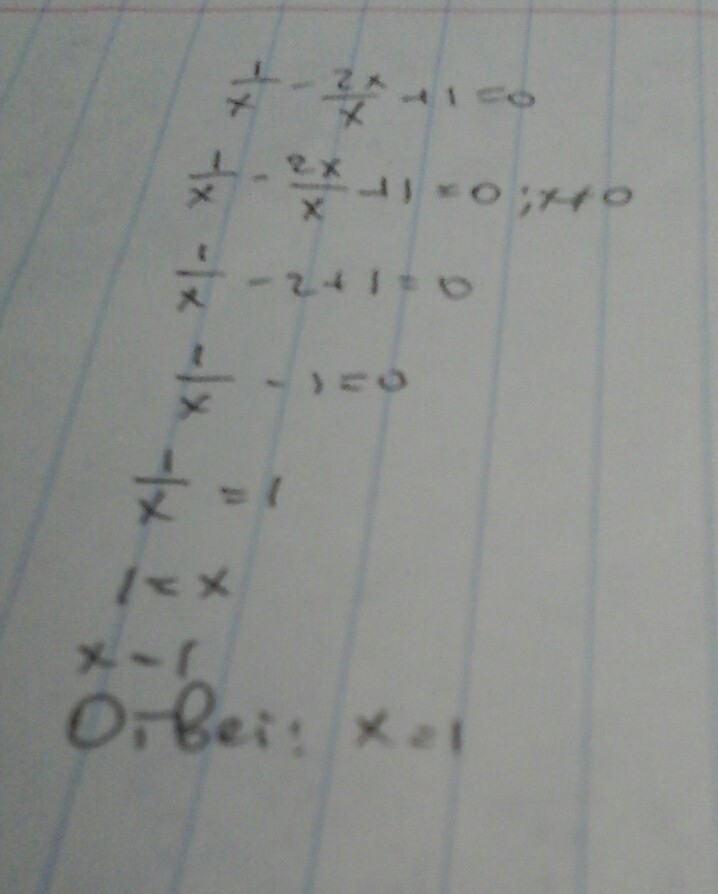 1/x - 2x/x + 1 = 0
1/x - 2x/x + 1 = 0 ; x ≠ 0
1/x - 2 + 1 = 0
1/x - 1 = 0
1/x = 1
1 = x
x = 1
Ответ: x = 1